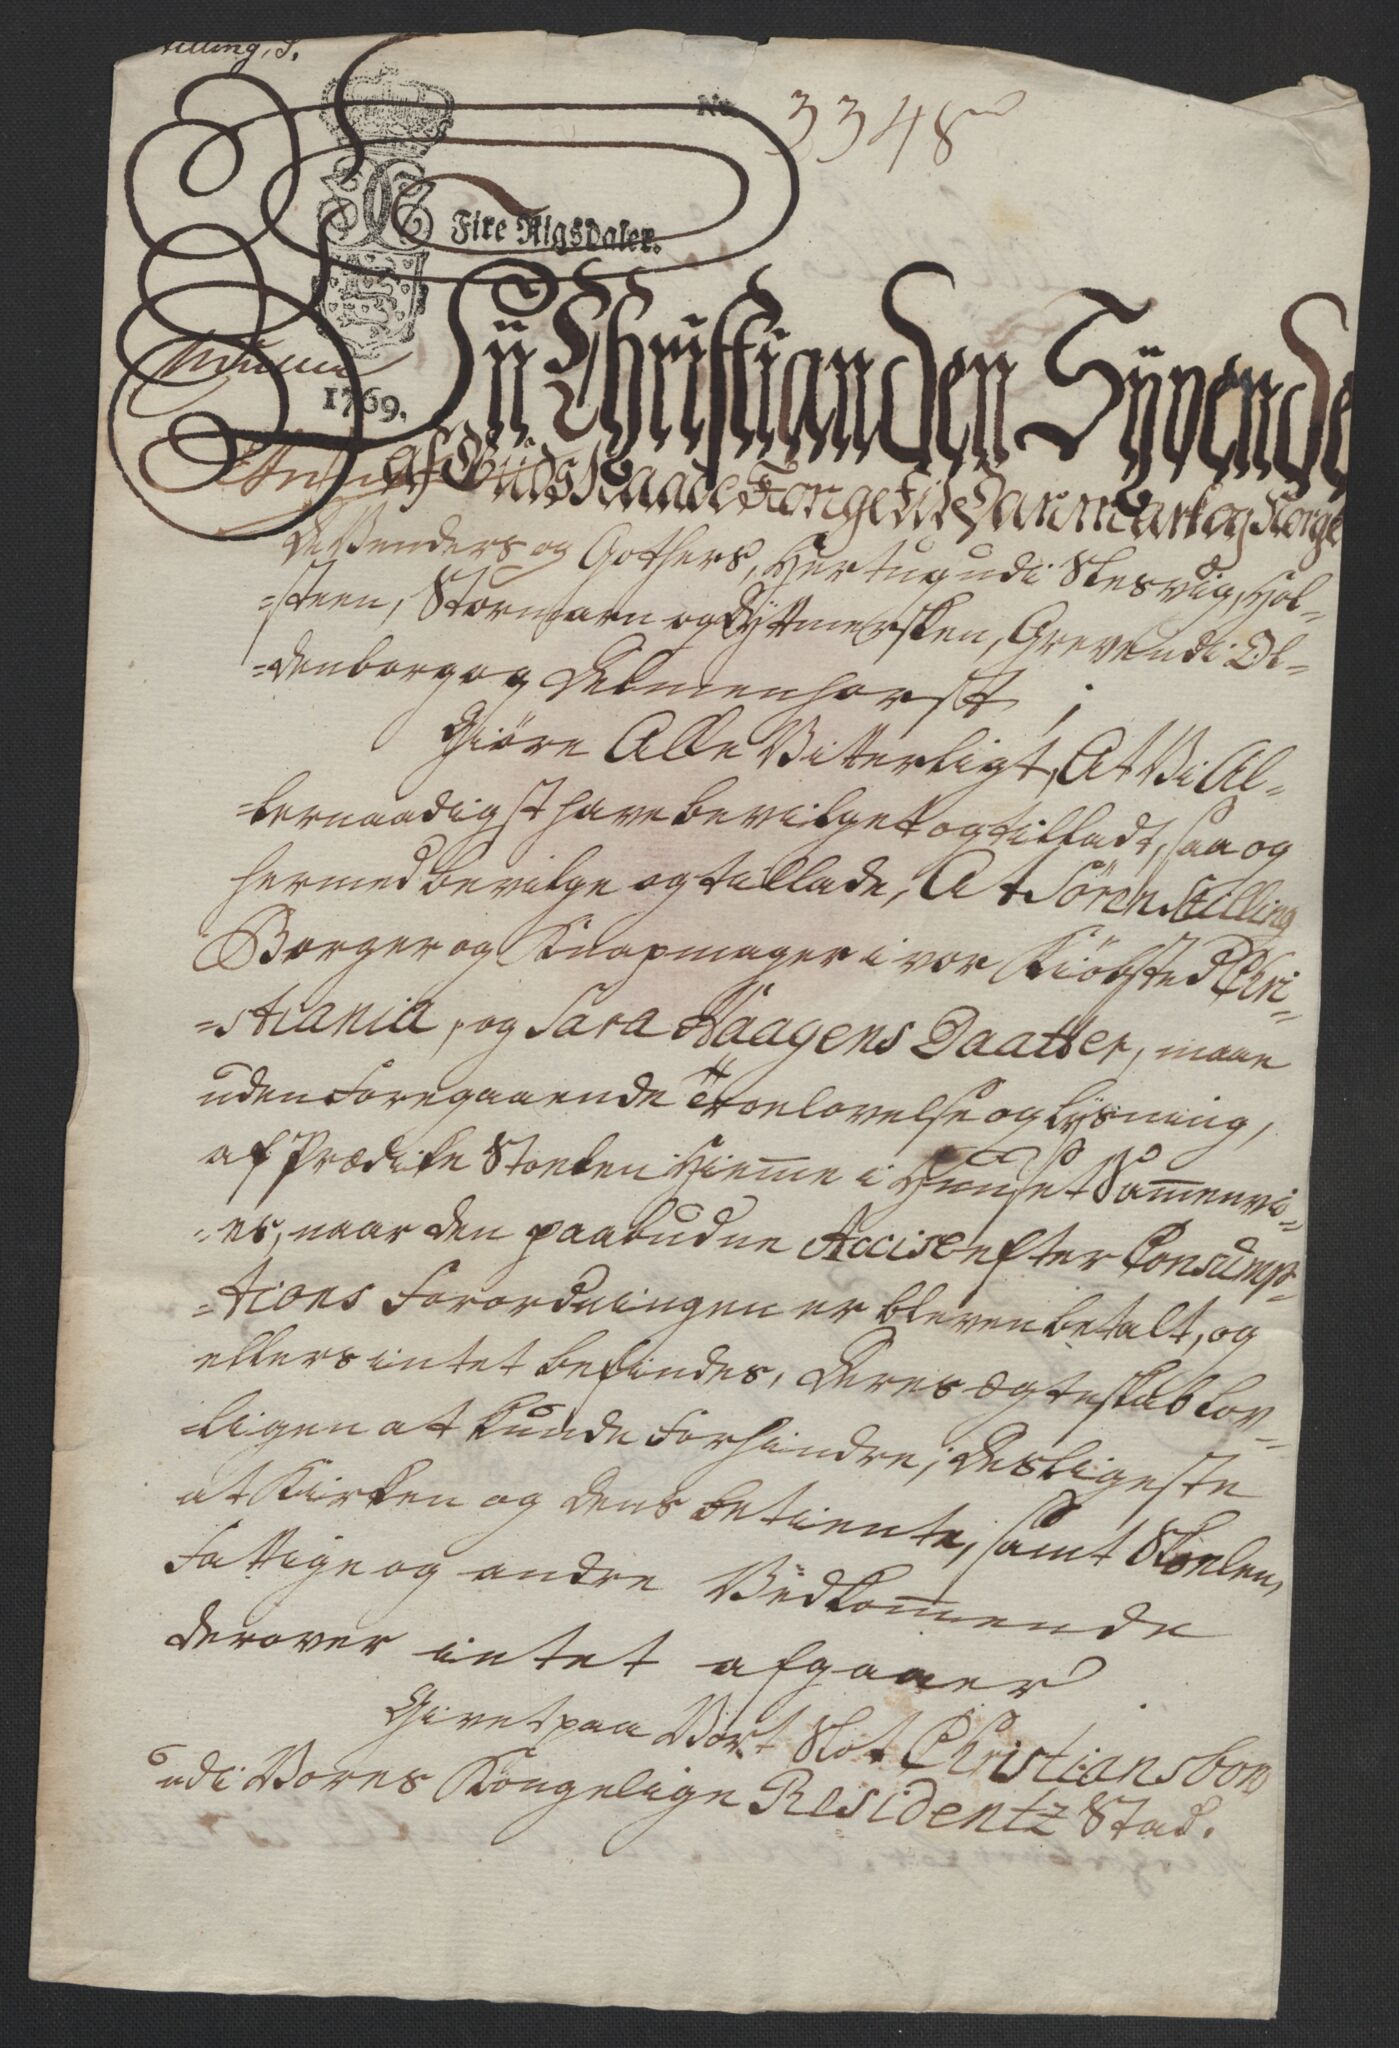 Stilling, S.
No. 3348
Fire Rigsdaler.
1769.
Vii Christian den Syvende
af Guds Naade Konge til Danmark og Norge
De Wenders og Gothers, Hertug udi Slesvig, Hol-
-steen, Stormarn og Dyttmersken, Greve udi Ol-
-denborg og Delmenhorst;
Giöre Alle Vitterligt, At Vi Al-
-lernaadigst have bevilget og tilladt, saa og
hermed bevilge og tillade, At Sören Stilling
Borger og Knapmager i vor Kiöbsted Chri-
-stiania, og Sara Haagens Daatter, maae
uden foregaaende Troelovelse og Lysning,
af Prædike Stoelen Hieme i Huuset Samenvi-
-es, naar den paabudne Accise efter Consump-
-tions Forordningen er bleven betalt, og
ellers intet befindes, Deres Ægteskab lov-
-ligen at kunde forhindre; Desligeste
at Kirken og dens betiente, samt Skolen,
Fattige og andre Vedkommende
derover intet afgaaer
Givet paa Vort Slot Christiansborg
udi Vores Kongelige Residentz Stad.